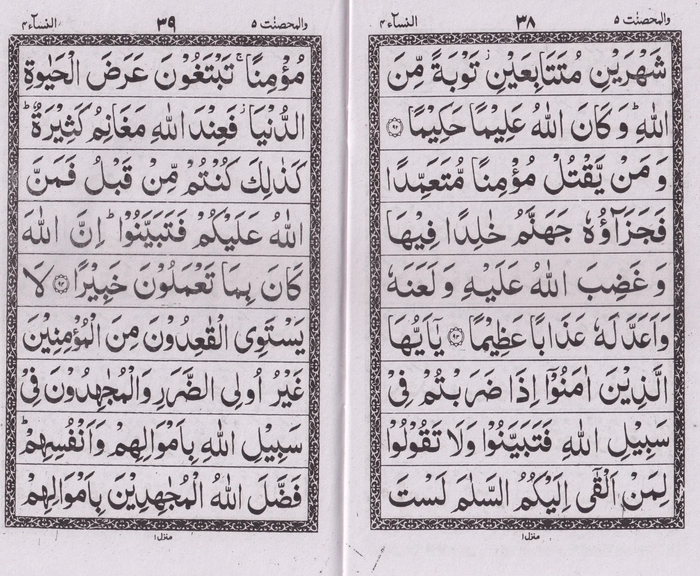 والمحصنت ٥ ٣٨ النسآء ٤
شَهْرَيْنِ مُتَتَابِعَيْنِ ۫ تَوْبَةً مِّنَ
اللّٰهِ ؕ وَ كَانَ اللّٰهُ عَلِيْمًا حَكِيْمًا ﴿۹۲﴾
وَ مَنْ يَّقْتُلْ مُؤْمِنًا مُّتَعَمِّدًا
فَجَزَآؤُهٗ جَهَنَّمُ خٰلِدًا فِيْهَا
وَ غَضِبَ اللّٰهُ عَلَيْهِ وَ لَعَنَهٗ
وَ اَعَدَّ لَهٗ عَذَابًا عَظِيْمًا ﴿۹۳﴾ يٰۤاَيُّهَا
الَّذِيْنَ اٰمَنُوْۤا اِذَا ضَرَبْتُمْ فِيْ
سَبِيْلِ اللّٰهِ فَتَبَيَّنُوْا وَ لَا تَقُوْلُوْا
لِمَنْ اَلْقٰۤى اِلَيْكُمُ السَّلٰمَ لَسْتَ
منزل ١
والمحصنت ٥ ٣٩ النسآء ٤
مُؤْمِنًا ۚ تَبْتَغُوْنَ عَرَضَ الْحَيٰوةِ
الدُّنْيَا ۫ فَعِنْدَ اللّٰهِ مَغَانِمُ كَثِيْرَةٌ ؕ
كَذٰلِكَ كُنْتُمْ مِّنْ قَبْلُ فَمَنَّ
اللّٰهُ عَلَيْكُمْ فَتَبَيَّنُوْا ؕ اِنَّ اللّٰهَ
كَانَ بِمَا تَعْمَلُوْنَ خَبِيْرًا ﴿۹۴﴾ لَا
يَسْتَوِي الْقٰعِدُوْنَ مِنَ الْمُؤْمِنِيْنَ
غَيْرُ اُولِي الضَّرَرِ وَالْمُجٰهِدُوْنَ فِيْ
سَبِيْلِ اللّٰهِ بِاَمْوَالِهِمْ وَاَنْفُسِهِمْ ؕ
فَضَّلَ اللّٰهُ الْمُجٰهِدِيْنَ بِاَمْوَالِهِمْ
منزل ١